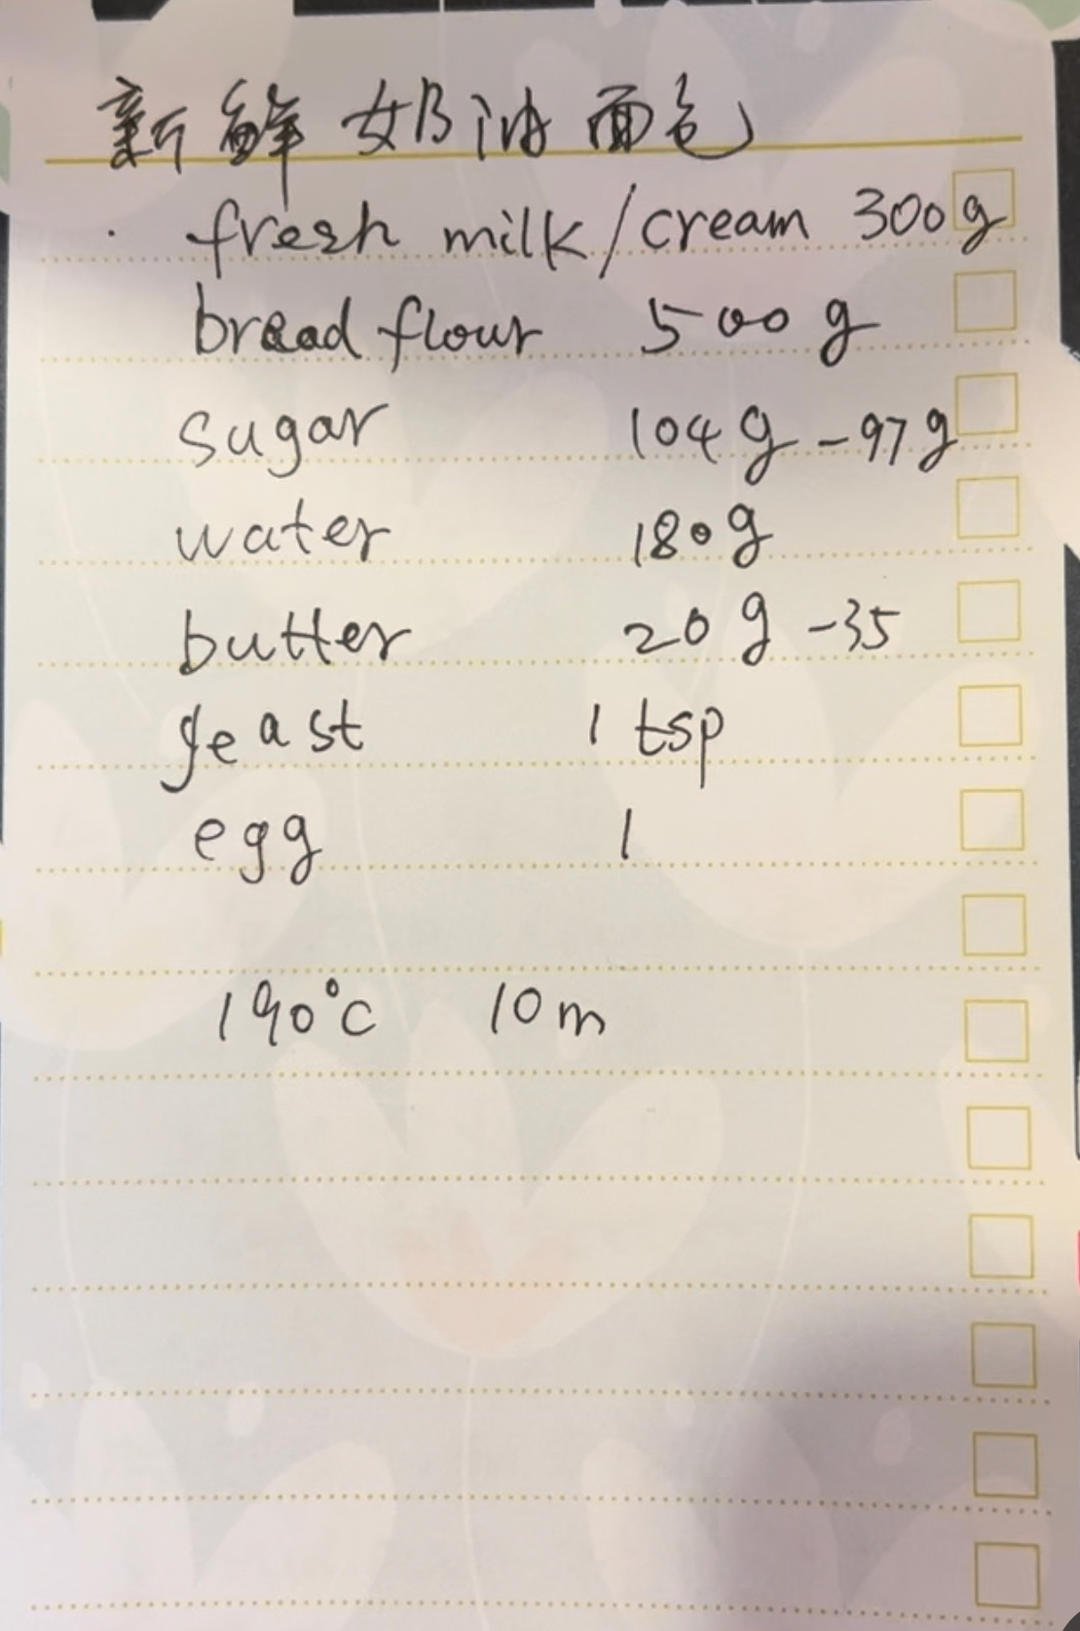 新鲜奶油面包
· fresh milk/cream 300g
bread flour 500g
sugar 104g-97g
water 180g
butter 20g-35
yeast 1 tsp
egg 1
190°C 10m